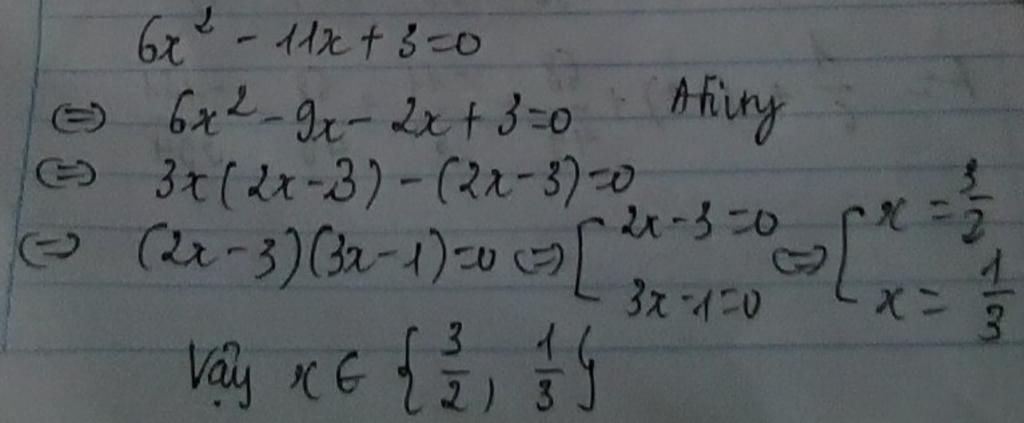 6x² - 11x + 3 = 0
⇔ 6x² - 9x - 2x + 3 = 0
⇔ 3x(2x - 3) - (2x - 3) = 0
⇔ (2x - 3)(3x - 1) = 0 ⇔ [ 2x - 3 = 0 3x - 1 = 0 ⇔ [ x = 3/2 x = 1/3
Vậy x ∈ {3/2, 1/3}